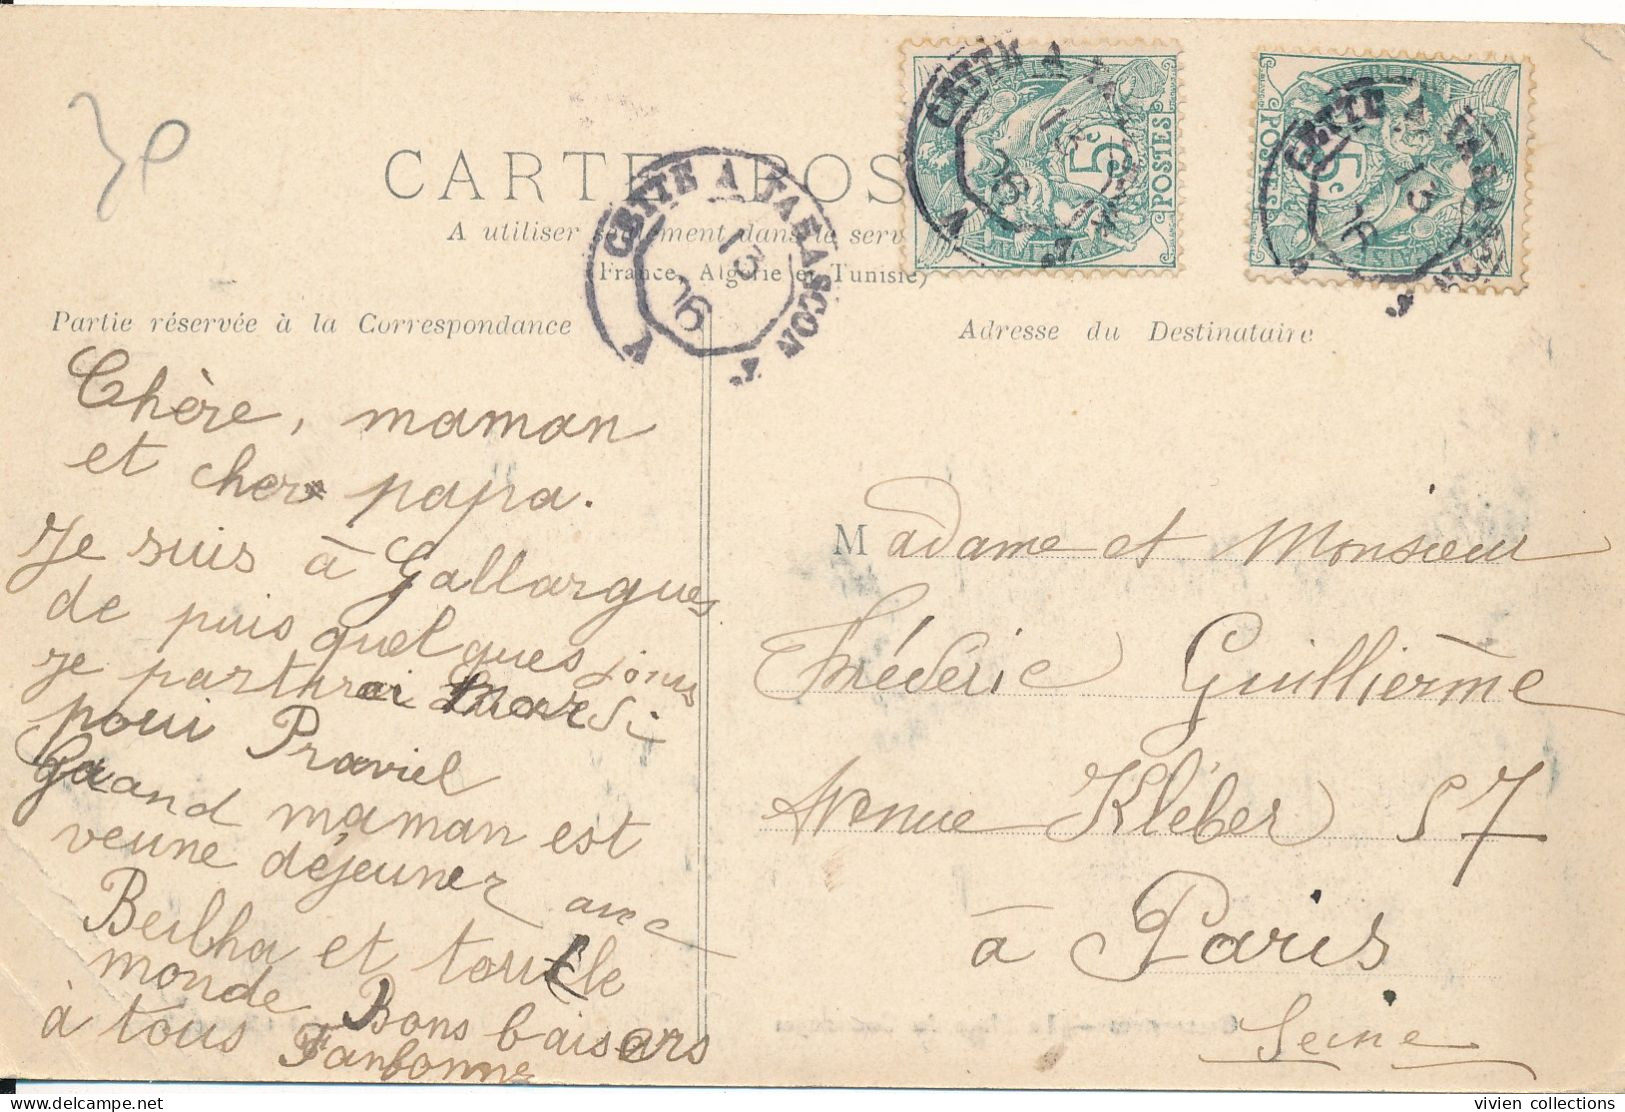 3P
CARTE POS
A utiliser seulement dans le serv
(France, Algérie et Tunisie)
CETTE A TARASCON
13
06
CETTE A
5c
POSTES
CETTE A TARASCON
13
06
5c
POSTES
Partie réservée à la Correspondance
Adresse du Destinataire
Chère, maman
et cher papa.
Je suis à Gallargues
de puis quelques jours
je partirai mardi
pour Praviel
Grand maman est
venne déjeuner avec
et tout le
monde Bons baisers
à tous
Madame et Monsieur
Frédéric Guillierme
Avenue Kléber 57
à Paris
Seine
vivien collections